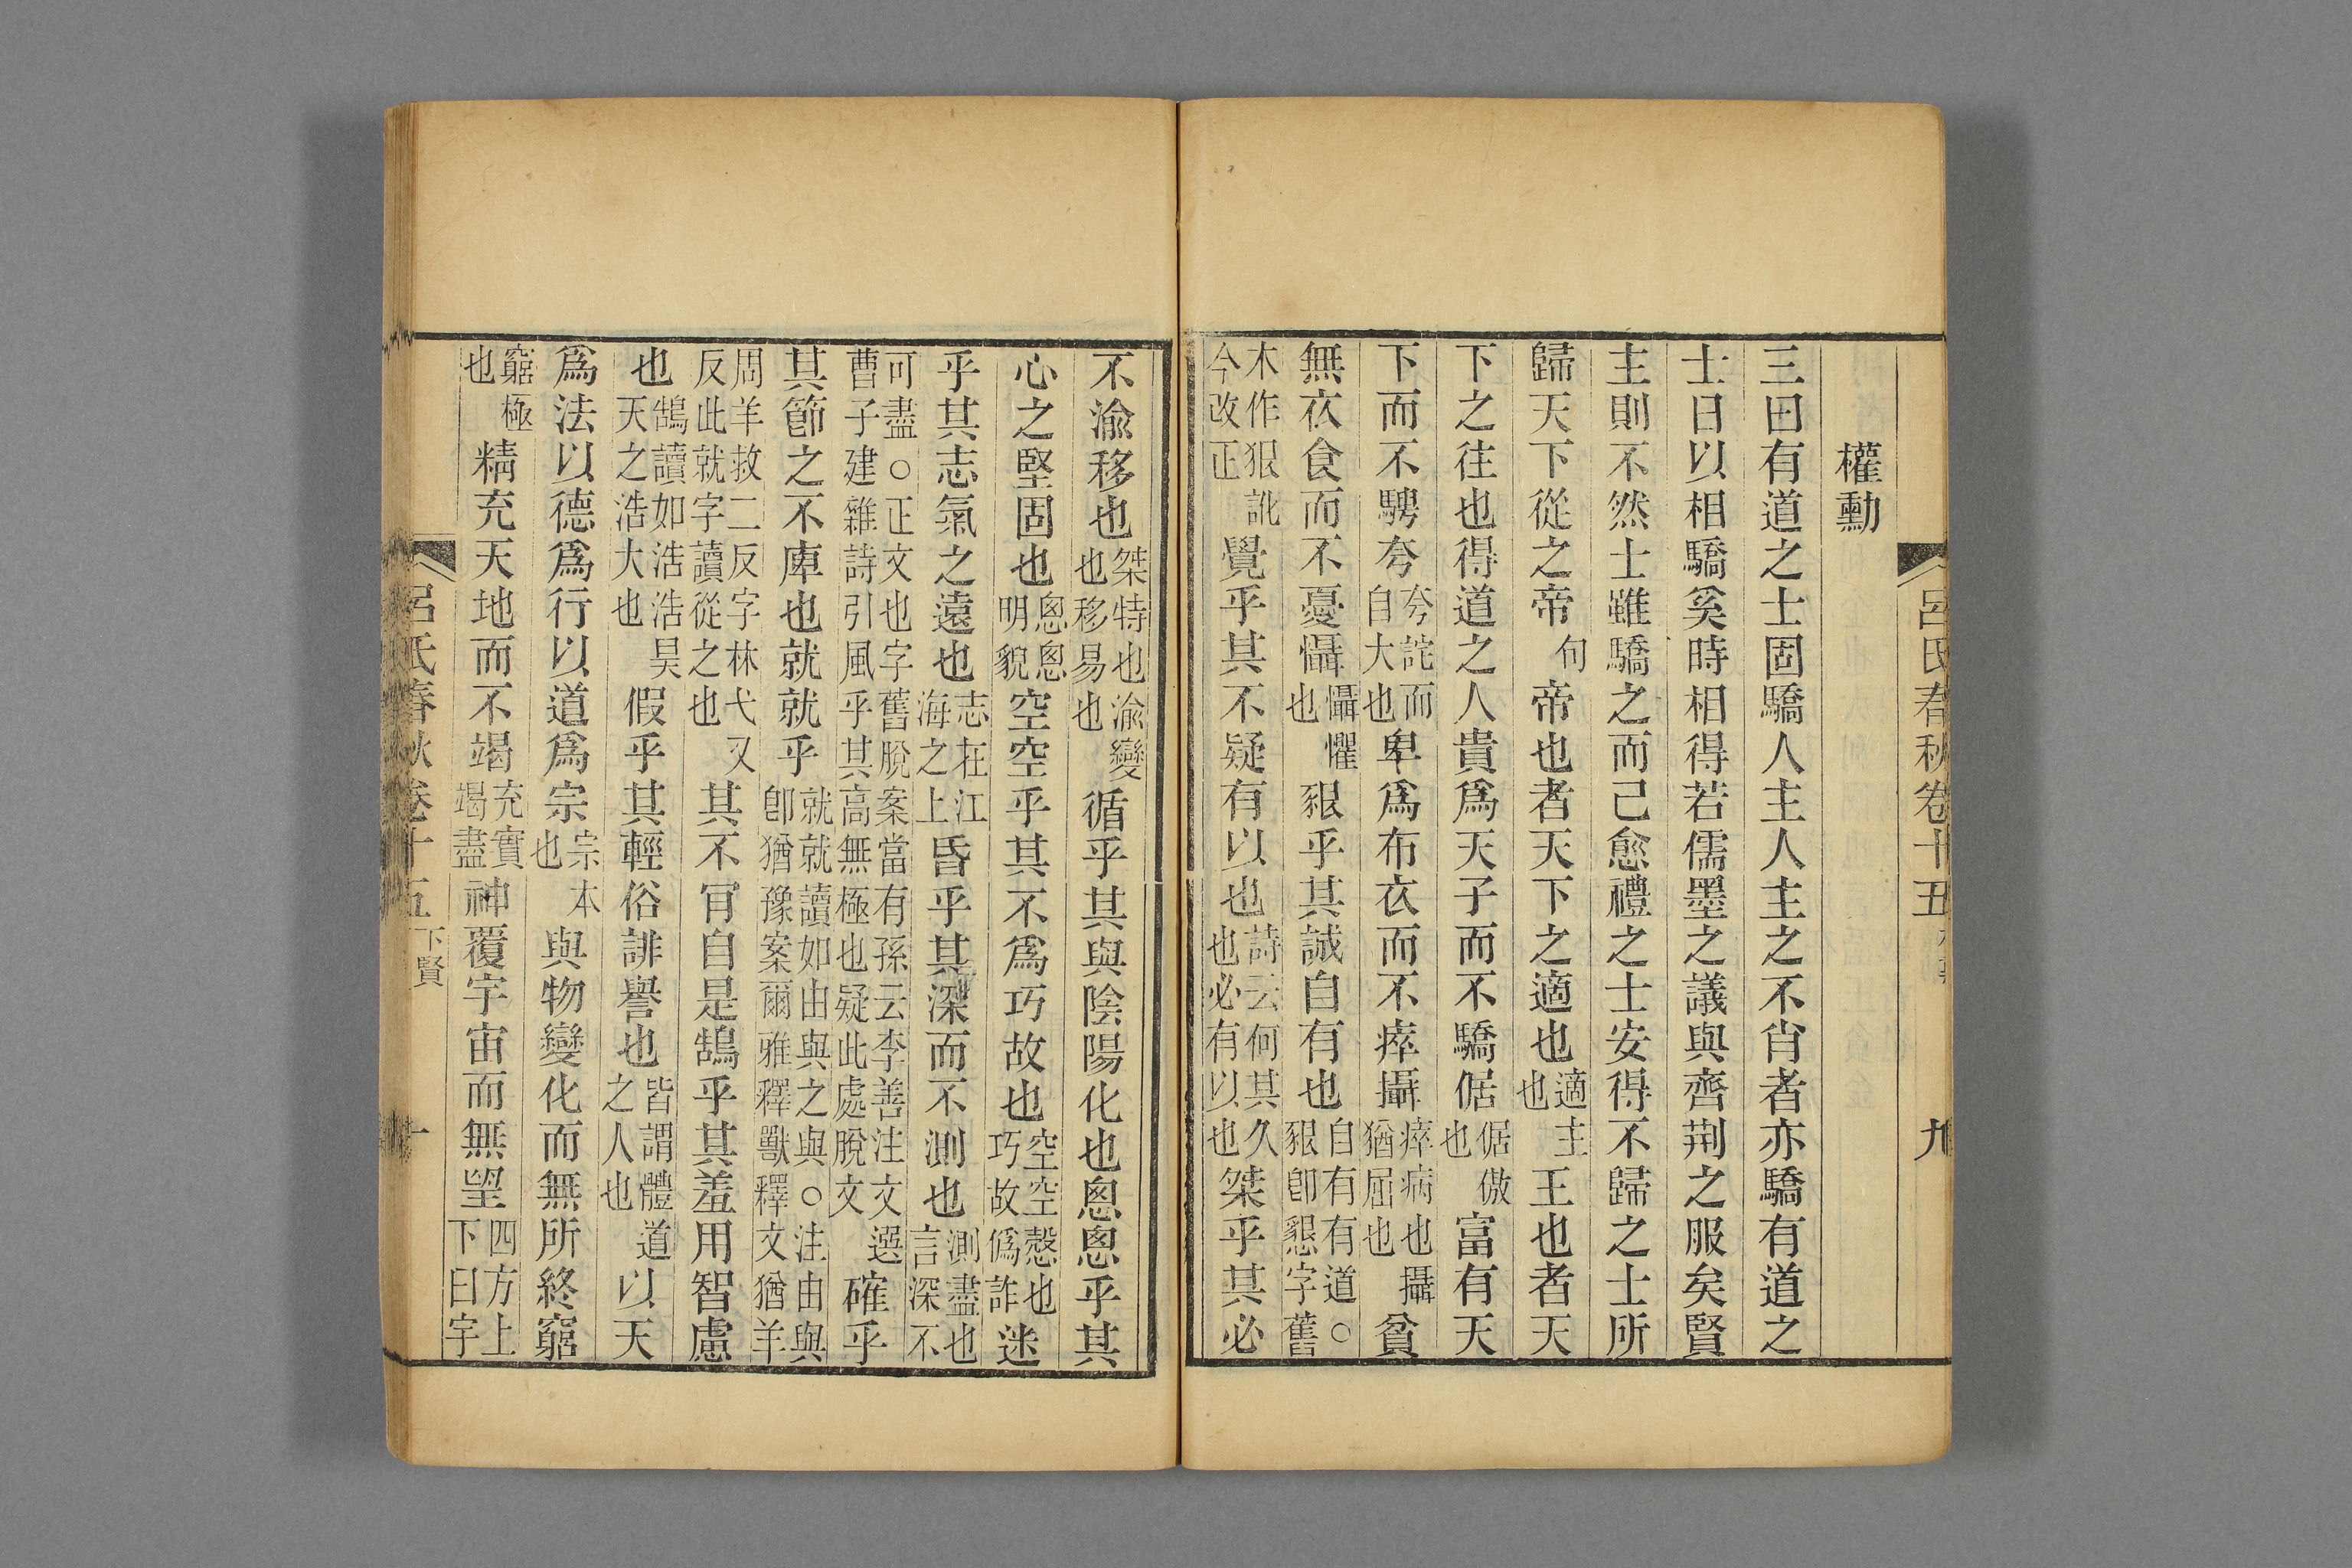 呂氏春秋卷十五 九
權勳
三曰有道之士固驕人主人主之不肖者亦驕有道之
士日以相驕奚時相得若儒墨之議與齊荆之服矣賢
主則不然士雖驕之而己愈禮之士安得不歸之士所
歸天下從之帝句帝也者天下之適也適主也王也者天
下之往也得道之人貴爲天子而不驕倨倨傲也富有天
下而不騁夸夸詫而自大也卑爲布衣而不瘁攝瘁病也攝猶屈也貧
無衣食而不憂懾懾懼也豤乎其誠自有也自有有道○豤卽懇字舊
木作狠訛今改正覺乎其不疑有以也詩云何其久也必有以也桀乎其必
不渝移也桀特也渝變也移易也循乎其與陰陽化也悤悤乎其
心之堅固也悤悤明貌空空乎其不爲巧故也空空慤也巧故僞詐迷
乎其志氣之遠也志在江海之上昏乎其深而不測也測盡也言深不
可盡○正文也字舊脫案當有孫云李善注文選曹子建雜詩引風乎其高無極也疑此處脫文確乎
其節之不庳也就就乎就就讀如由與之與○注由與卽猶豫案爾雅釋獸釋文猶羊
周羊救二反字林弋又反此就字讀從之也其不肎自是鵠乎其羞用智慮
也鵠讀如浩浩昊天之浩大也假乎其輕俗誹譽也皆謂體道之人也以天
爲法以德爲行以道爲宗宗本也與物變化而無所終窮
窮極也精充天地而不竭充實竭盡神覆宇宙而無望四方上下曰宇
呂氏春秋卷十五 下賢 十